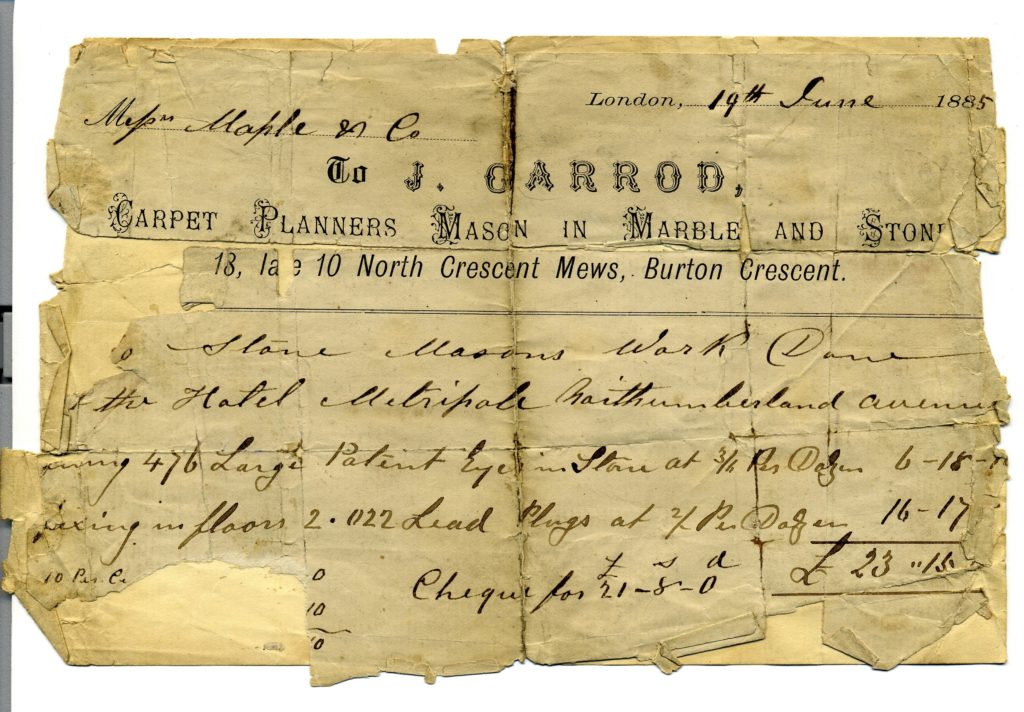 London, 19th June 1885
Messrs Maple & Co
To J. CARROD,
CARPET PLANNERS MASON IN MARBLE AND STONE
18, late 10 North Crescent Mews, Burton Crescent.
o Stone Masons Work Done
the Hotel Metripole Northumberland avenue
476 Large Patent Eyes in Stone at 3/6 Per Dozen 6-18-
fixing in floors 2.022 Lead Plugs at 2/ Per Dozen 16-17
£ 23 "15
10 Per Ce 0
£ s d
Cheque for 21-8-0
10
10